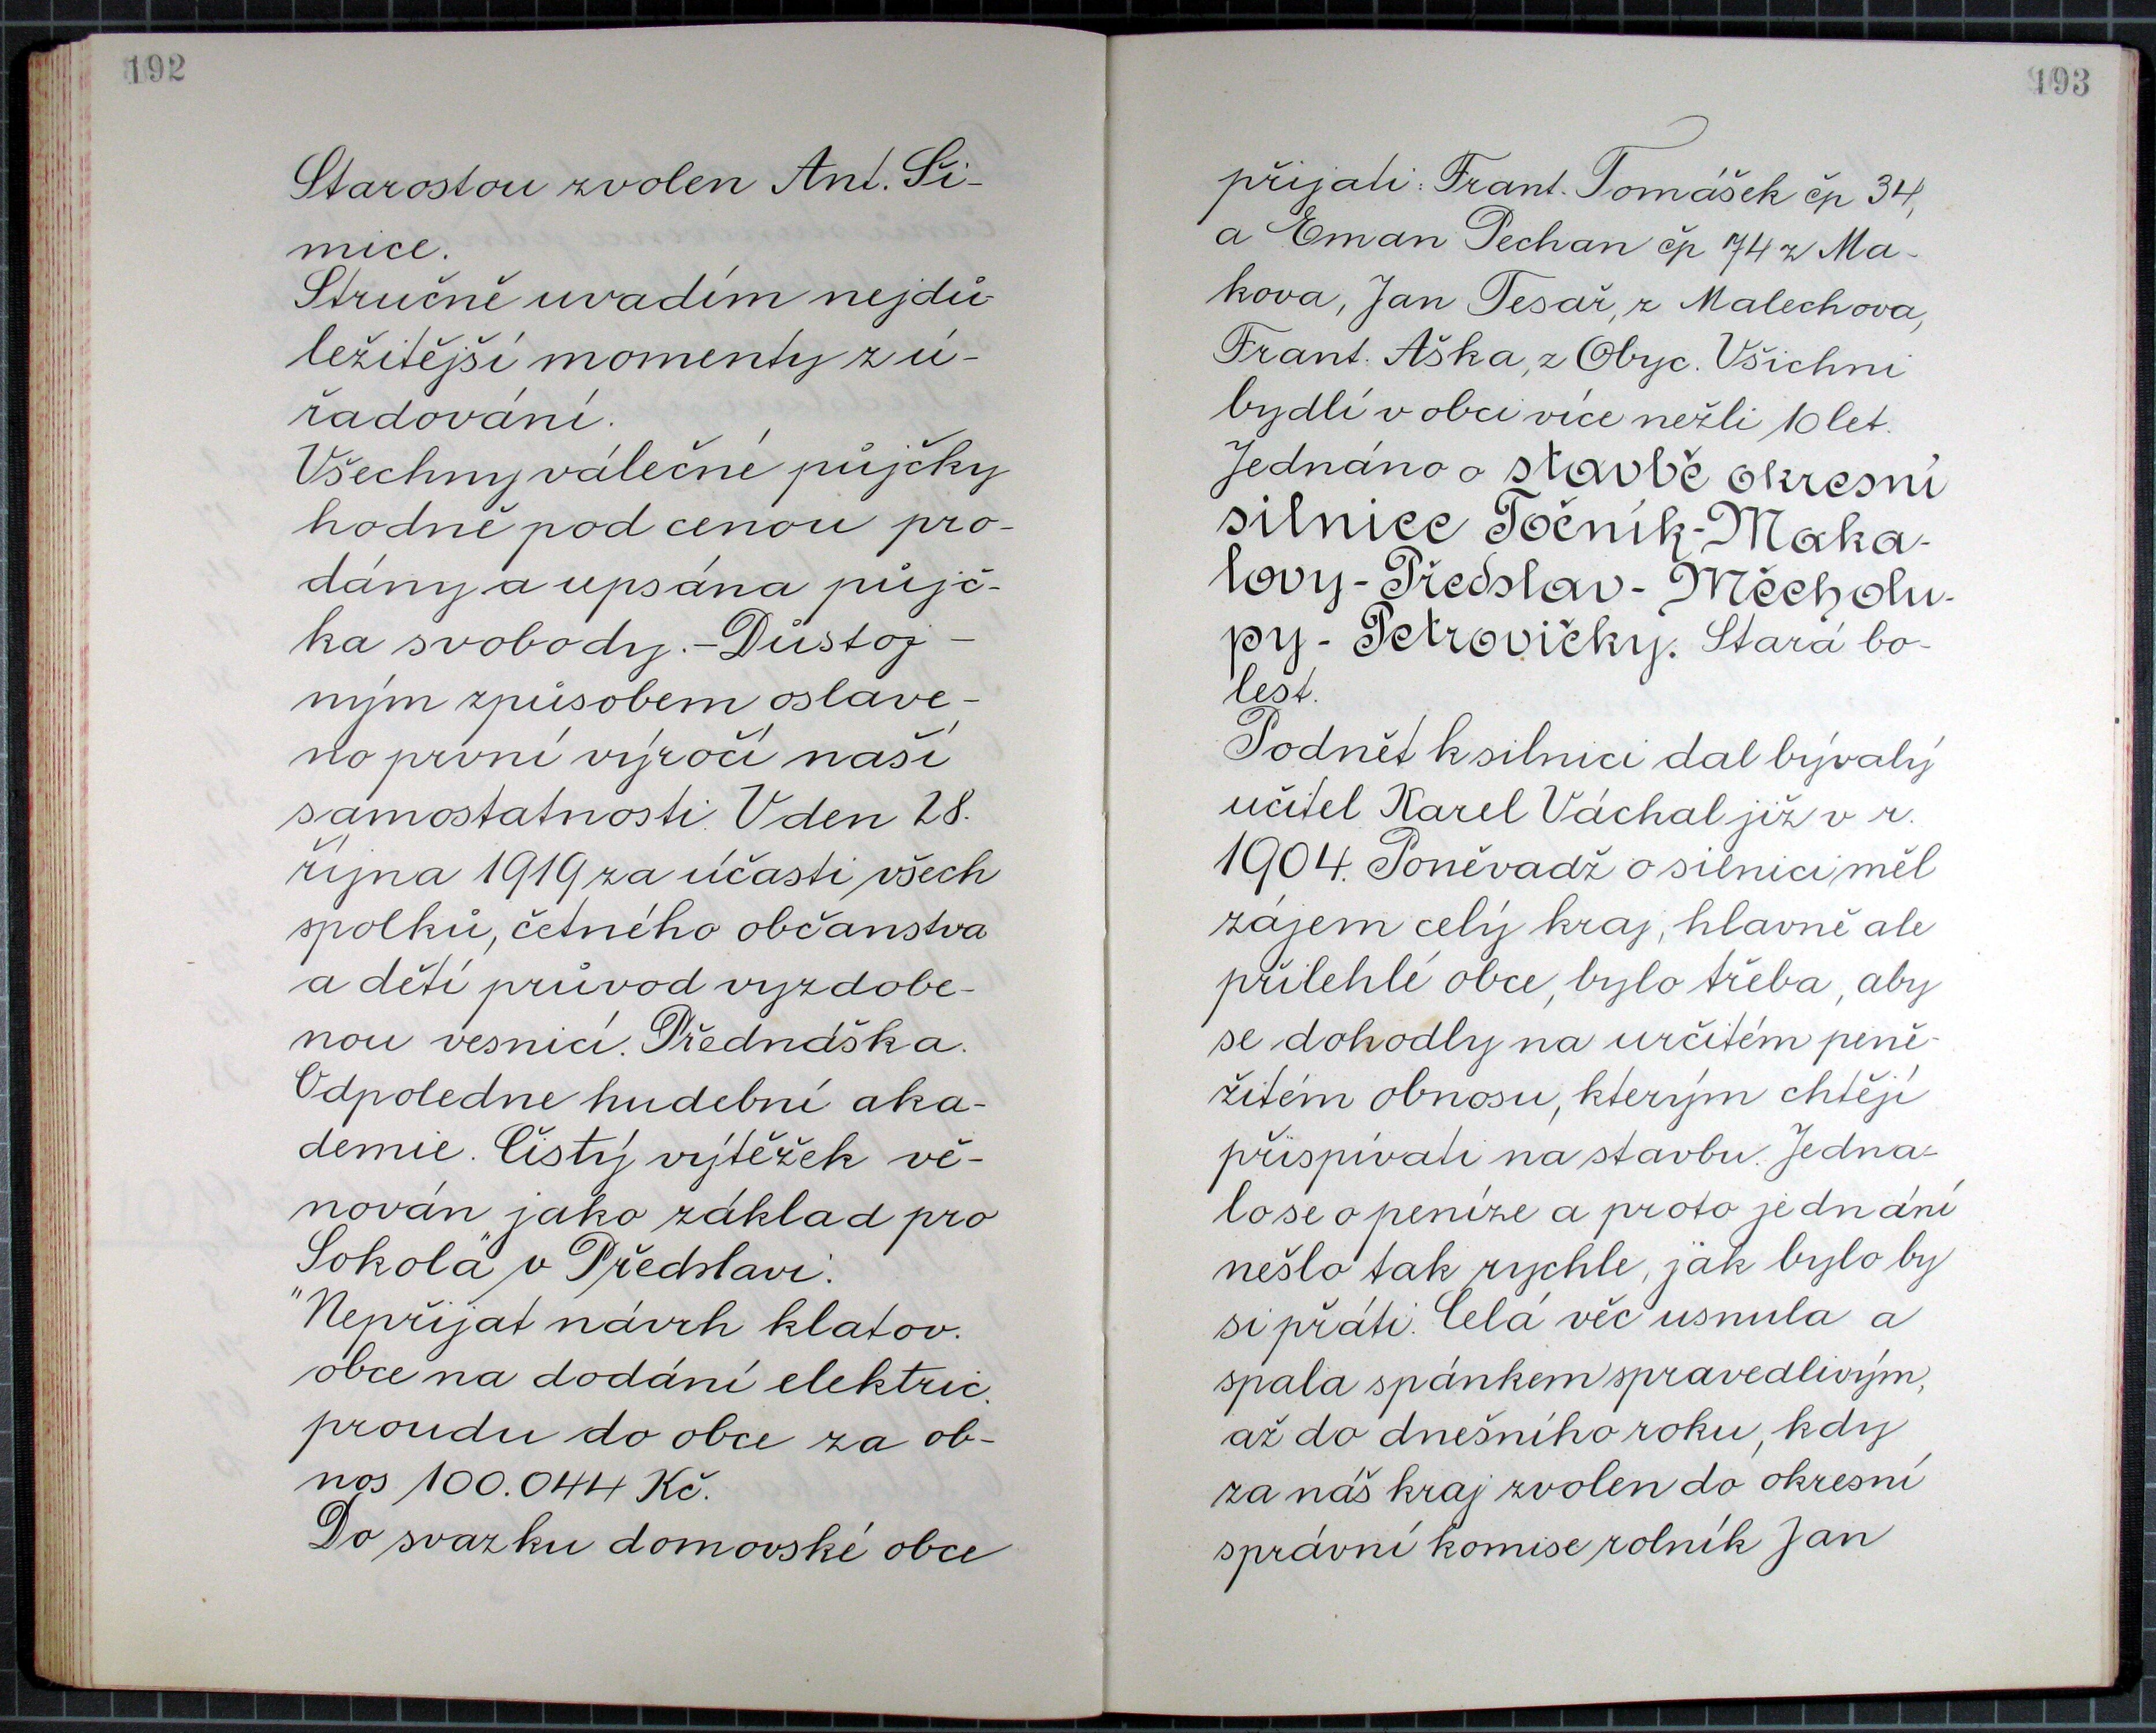 192
Starostou zvolen Ant. Ši-
mice.
Stručně uvadím nejdů-
ležitější momenty z ú-
řadování.
Všechny válečné půjčky
hodně pod cenou pro-
dány a upsána půjč-
ka svobody. - Důstoj -
ným způsobem oslave-
no první výročí naší
samostatnosti. V den 28.
října 1919 za účasti všech
spolků, četného občanstva
a dětí průvod vyzdobe-
nou vesnicí. Přednáška.
Odpoledne hudební aka-
demie. Čistý výtěžek vě-
nován jako základ pro
„Sokola" v Předslavi.
Nepřijat návrh klatov.
obce na dodání elektric.
proudu do obce za ob-
nos 100.044 Kč.
Do svazku domovské obce
193
přijati: Frant. Tomášek čp 34,
a Eman Pechan čp 74 z Ma-
kova, Jan Tesař, z Malechova,
Frant. Aška, z Obyc. Všichni
bydlí v obci více nežli 10 let.
Jednáno o stavbě okresní
silnice Točník-Maka-
lovy-Předslav-Měcholu-
py-Petrovičky. Stará bo-
lest.
Podnět k silnici dal bývalý
učitel Karel Váchal již v r.
1904. Poněvadž o silnici měl
zájem celý kraj, hlavně ale
přilehlé obce, bylo třeba, aby
se dohodly na určitém peně-
žitém obnosu, kterým chtějí
přispívati na stavbu. Jedna-
lo se o peníze a proto jednání
nešlo tak rychle, jak bylo by
si přáti. Celá věc usnula a
spala spánkem spravedlivým,
až do dnešního roku, kdy
za náš kraj zvolen do okresní
správní komise rolník Jan